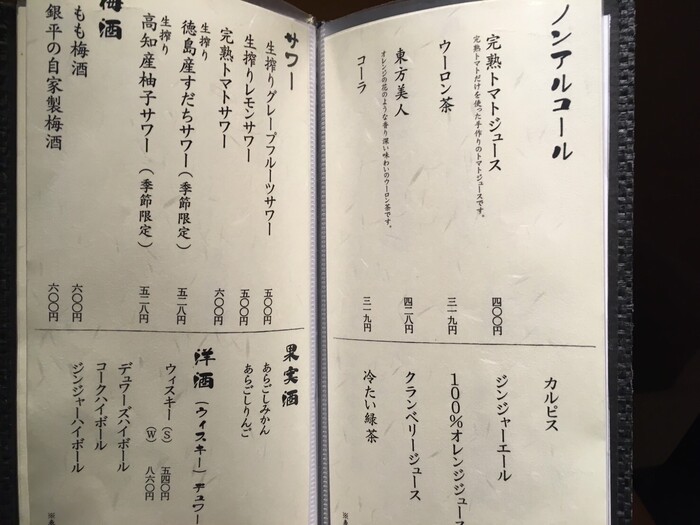 ノンアルコール
完熟トマトジュース
完熟トマトだけを使った手作りのトマトジュースです。
四〇〇円
ウーロン茶
三一九円
東方美人
オレンジの花のような香り深い味わいのウーロン茶です。
四二八円
コーラ
三一九円
カルピス
ジンジャーエール
100%オレンジジュース
クランベリージュース
冷たい緑茶
サワー
生搾りグレープフルーツサワー
五〇〇円
生搾りレモンサワー
五〇〇円
完熟トマトサワー
六〇〇円
生搾り
徳島産すだちサワー(季節限定)
五二八円
生搾り
高知産柚子サワー(季節限定)
五二八円
梅酒
もも梅酒
六〇〇円
銀平の自家製梅酒
六〇〇円
果実酒
あらごしみかん
あらごしりんご
洋酒(ウィスキー)デュワー
ウィスキー(S) 五四〇円
(W) 八六〇円
デュワーズハイボール
コークハイボール
ジンジャーハイボール